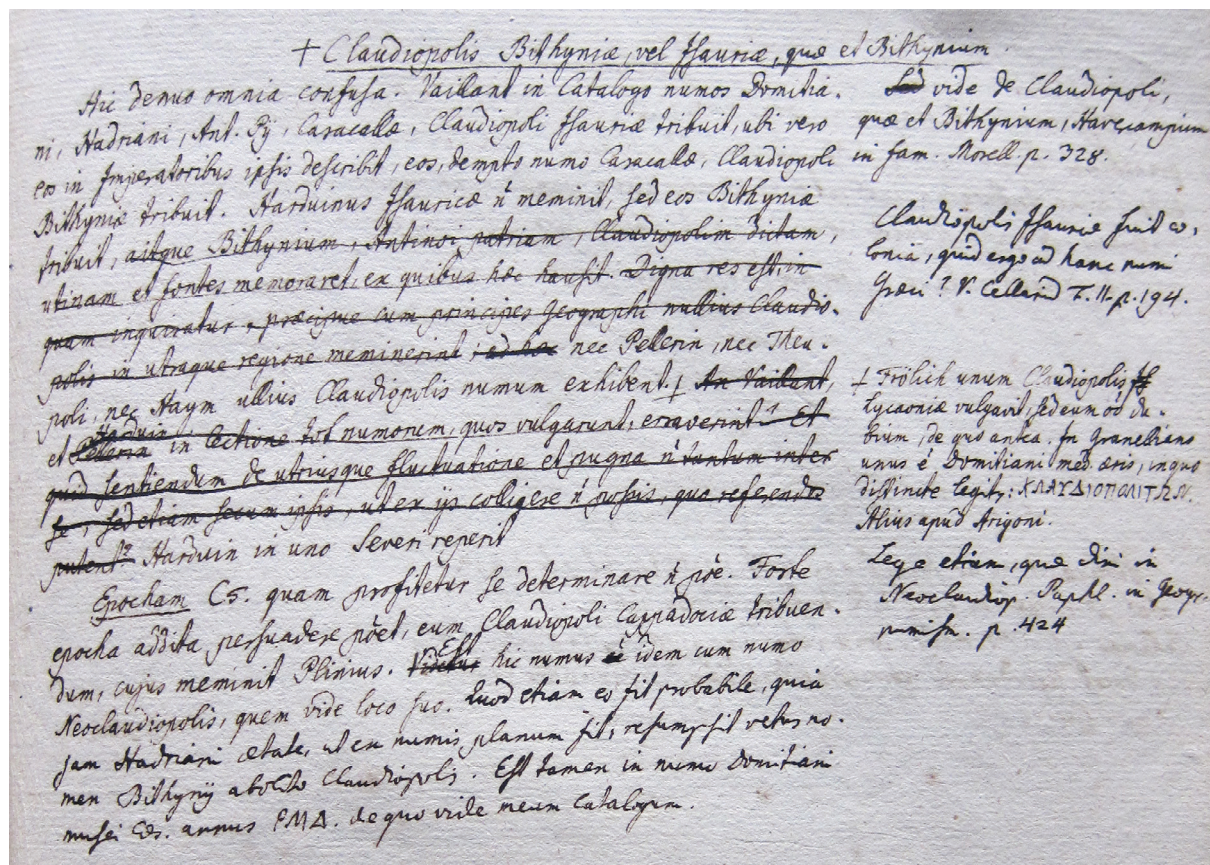 + Claudiopolis Bithyniæ, vel Isauriæ, quæ et Bithynium.
Hic denuo omnia confusa. Vaillant in Catalogo numos Domitia-
ni, Hadriani, Ant. Pij, Caracallæ, Claudiopoli Isauriæ tribuit, ubi vero
eos in Imperatoribus ipsis describit, eos, dempto numo Caracallæ, Claudiopoli
Bithyniæ tribuit. Harduinus Isauricæ n̄ meminit, sed eos Bithyniæ
tribuit, aitque Bithynium, Antinoi patriam, Claudiopolim dictam,
utinam et fontes memoraret, ex quibus hæc hausit. Digna res est, in
quam inquiratur, præcipue cum principes Geographi nullius Claudio-
polis in utraque regione meminerint, ad hæc nec Pellerin, nec Theu-
poli, nec Haym ullius Claudiopolis numum exhibent. † An Vaillant,
et Pelerin Harduin in lectione tot numorum, quos vulgarunt, erraverint? Et
quid sentiendum de utriusque fluctuatione et pugna n̄ tantum inter
se, sed etiam secum ipsis, ut ex ijs colligere n̄ possis, quo referendos
putent? Harduin in uno Severi reperit
Epocham CS. quam profitetur se determinare n̄ p̄oe. Forte
epocha addita persuadere p̄oet, eum Claudiopoli Cappadociæ tribuen-
dum, cujus meminit Plinius. Videtur Est hic numus idem cum numo
Neoclaudiopolis, quem vide loco suo. Quod etiam eo fit probabile, quia
jam Hadriani ætate, ut ex numis planum fit, resumpsit vetus no-
men Bithynij abolito Claudiopolis. Est tamen in numo Domitiani
musei Cæs. annus ΡΜΔ. de quo vide meum Catalogum.
Sed vide de Claudiopoli,
quæ et Bithynium, Havercampium
in fam. Morell. p. 328.
Claudiopolis Isauriæ fuit co-
lonia, quid ergo ad hanc numi
Græci? V. Cellarid T. II. p. 194.
† Frölich unum Claudiopolis
Lycaoniæ vulgavit, sed eum ob du-
bium, de quo antea. In Granelliano
unus ē Domitiani med. æris, in quo
distincte legitr: ΚΛΑΥΔΙΟΠΟΛΙΤΩΝ.
Alius apud Arigoni.
Lege etiam, quæ dixi in
Neoclaudiop. Paphl. in Geogr.
numism. p. 424